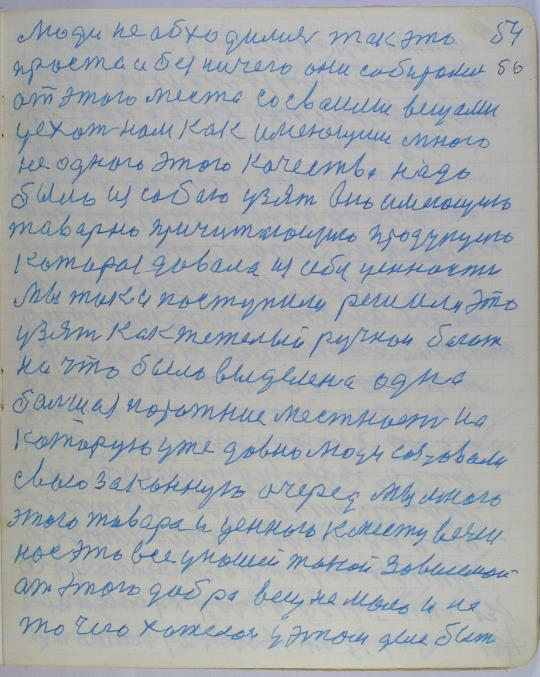 Люди не обходилис так это 54
проста и без ничего они собирали 56
от этого места со сваими вещами
уехат нам как имеющим много
не одного этого качества надо
было из собою узят
таварно причитающую продукцию
котора довала из себя ценности
мы так и поступили решили это
узят как тежелый ручной багаж
на что было выделена одна
балша местност на
которую уже довно люди создовали
свою законную очеред мы много
этого товара и ценного к месту вечи
нос это все унашей такой зависемой
ат этого добра вещ не мало и не
то чего хотелос у этом деле быт